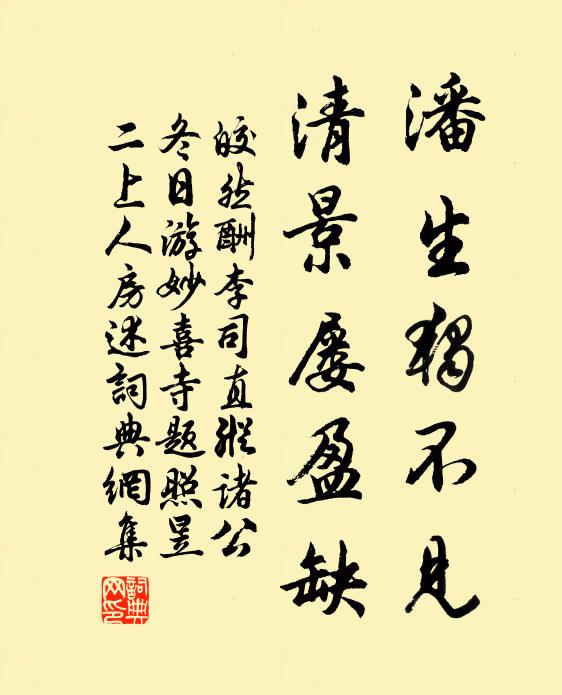 潘生独不見
清景屡盈缺
皎然酬李司直縱諸公
冬日游妙喜寺题照昱
二上人房述詞典網集
詞典网印